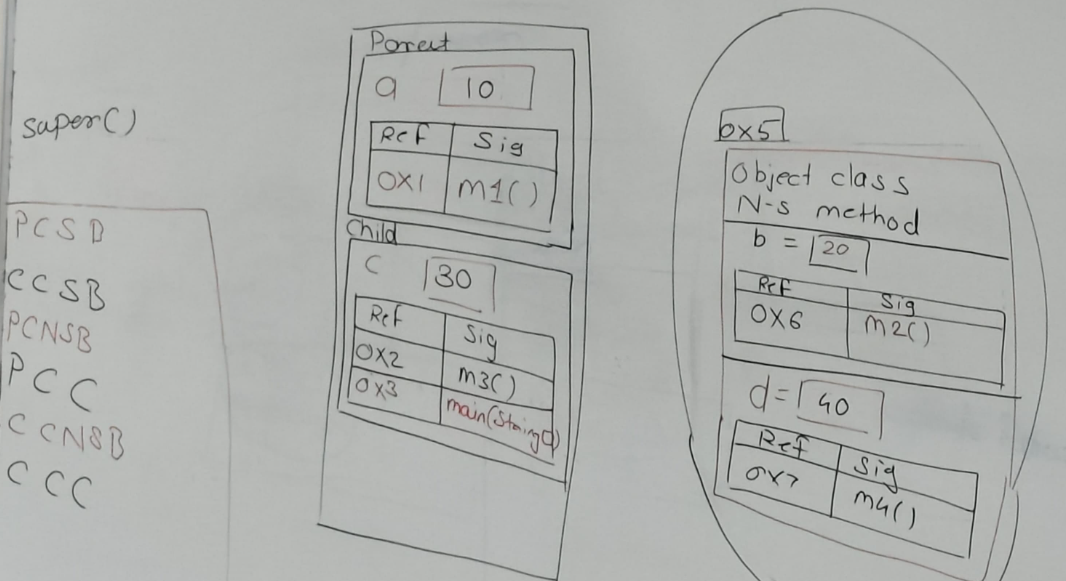 super()
PCSB
CCSB
PCNSB
PCC
CCNSB
CCC
Parent
a 10
Ref Sig
0X1 m1()
Child
C 30
Ref Sig
0X2 m3()
0X3 main(String[])
0x5
Object class
N-S method
b = 20
Ref Sig
0X6 m2()
d = 40
Ref Sig
0X7 m4()